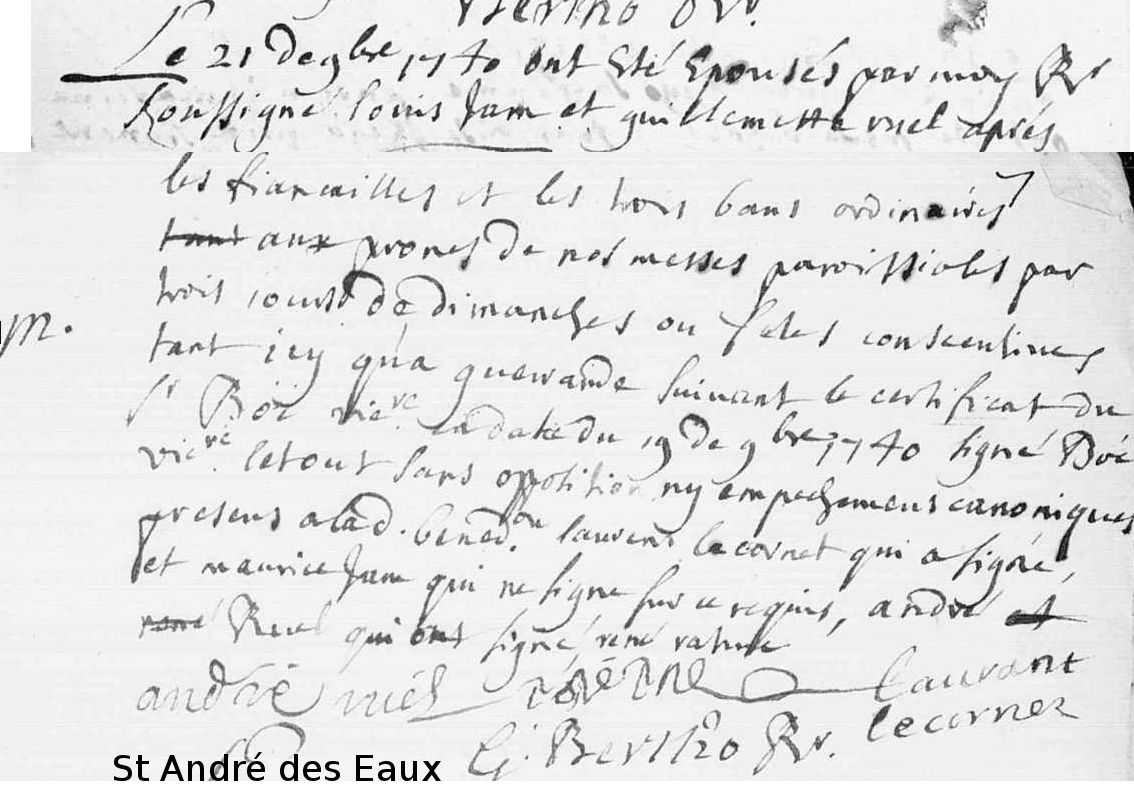 Bertho Rr.
Le 21 de 9bre 1740 ont Eté Epousés par moy Rr
Soussigné louis Jam et guillemette ruel aprés
les fiancailles et les trois bans ordinaires
tant aux prones de nos messes paroissiales par
trois jours de dimanches ou fetes consecutives
m.
tant icy qu'a guerrande suivant le certificat du
sr Böé vicre. en date du 19 de 9bre 1740 signé Böé
vicre. le tout sans opposition ny empechemens canoniques
presens a lad. bened.on laurent lecornet qui a signé,
et maurice Jam qui ne signe sur ce requis, andré et
rené Ruel qui ont signé, rené rature
andré ruél laurant
lecornet
G. Bertho Rr.
St André des Eaux